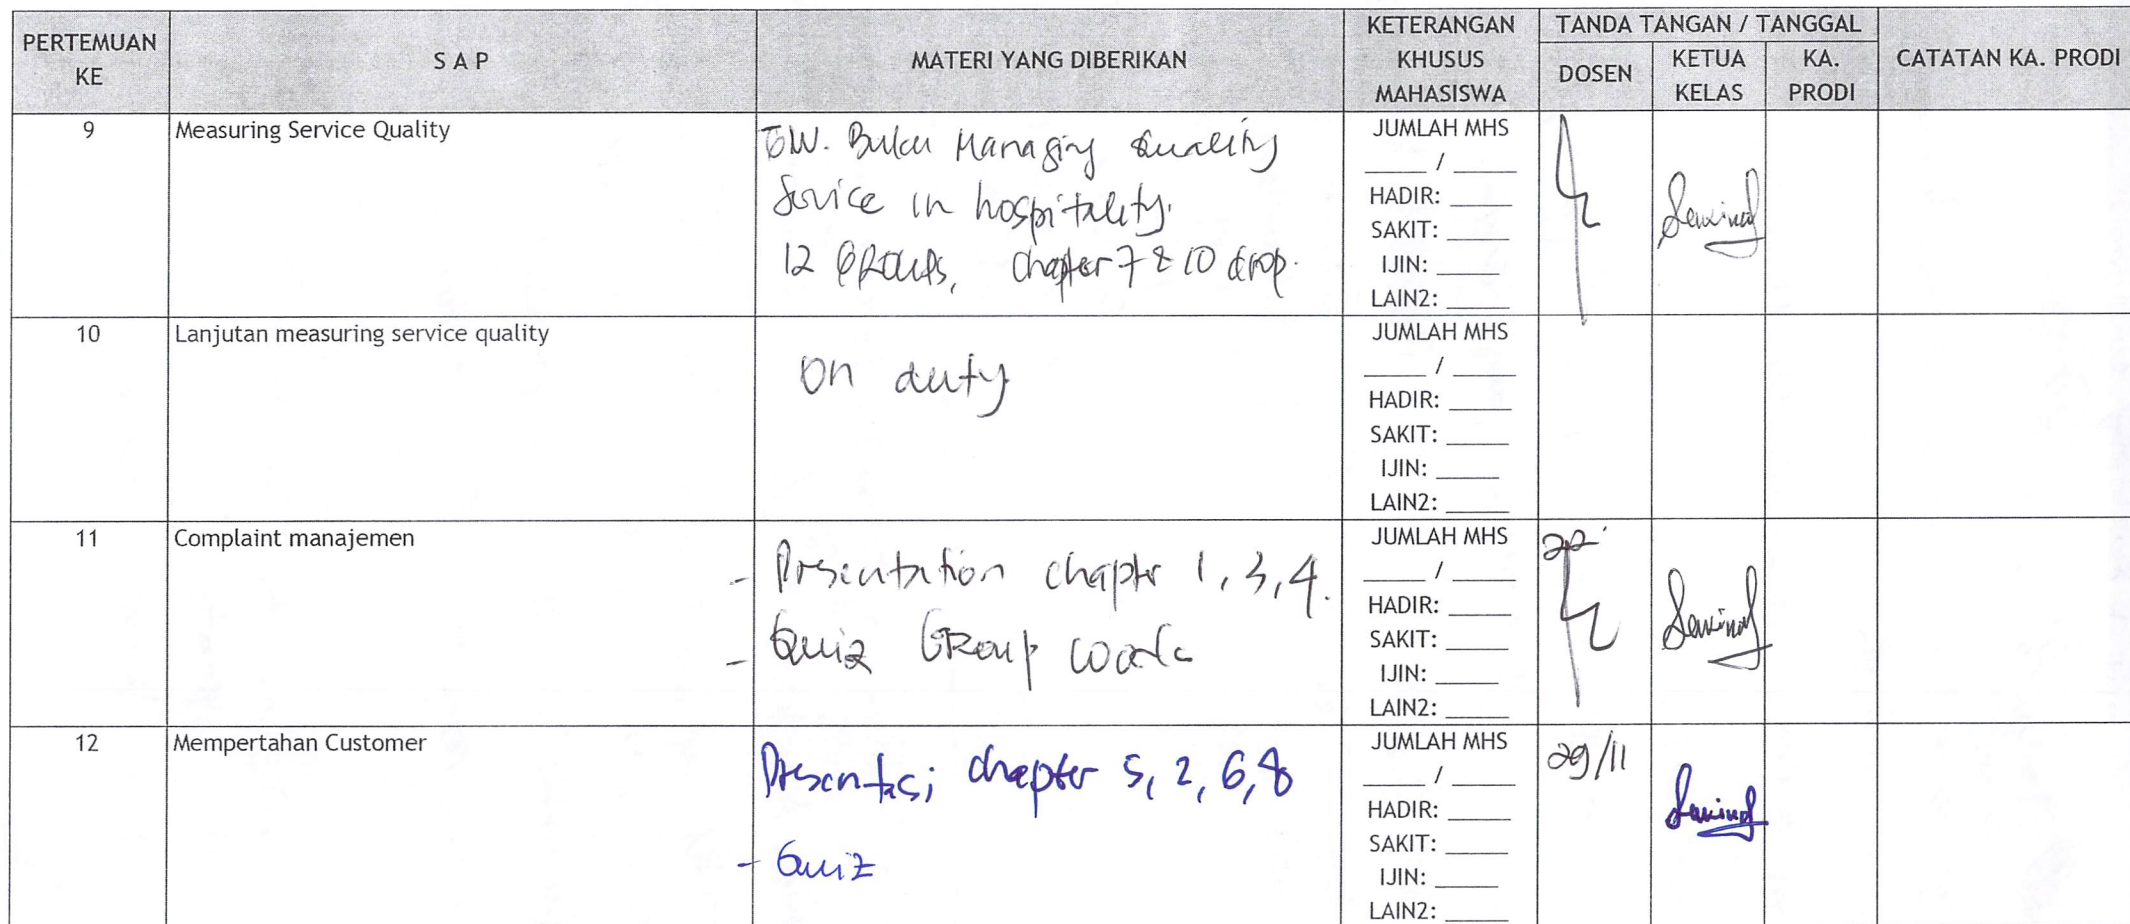 PERTEMUAN KE
S A P
MATERI YANG DIBERIKAN
KETERANGAN KHUSUS MAHASISWA
TANDA TANGAN / TANGGAL
DOSEN
KETUA KELAS
KA. PRODI
CATATAN KA. PRODI
9
Measuring Service Quality
Buku Managing Quality
Service in hospitality.
12 GROUPS, chapter 7 & 10 drop.
JUMLAH MHS
____ / ____
HADIR: ____
SAKIT: ____
IJIN: ____
LAIN2: ____
10
Lanjutan measuring service quality
On duty
JUMLAH MHS
____ / ____
HADIR: ____
SAKIT: ____
IJIN: ____
LAIN2: ____
11
Complaint manajemen
- Presentation chapter 1, 3, 4.
- Quiz Group work
JUMLAH MHS
____ / ____
HADIR: ____
SAKIT: ____
IJIN: ____
LAIN2: ____
12
Mempertahan Customer
Presentasi chapter 5, 2, 6, 8
- Quiz
JUMLAH MHS
____ / ____
HADIR: ____
SAKIT: ____
IJIN: ____
LAIN2: ____
29/11